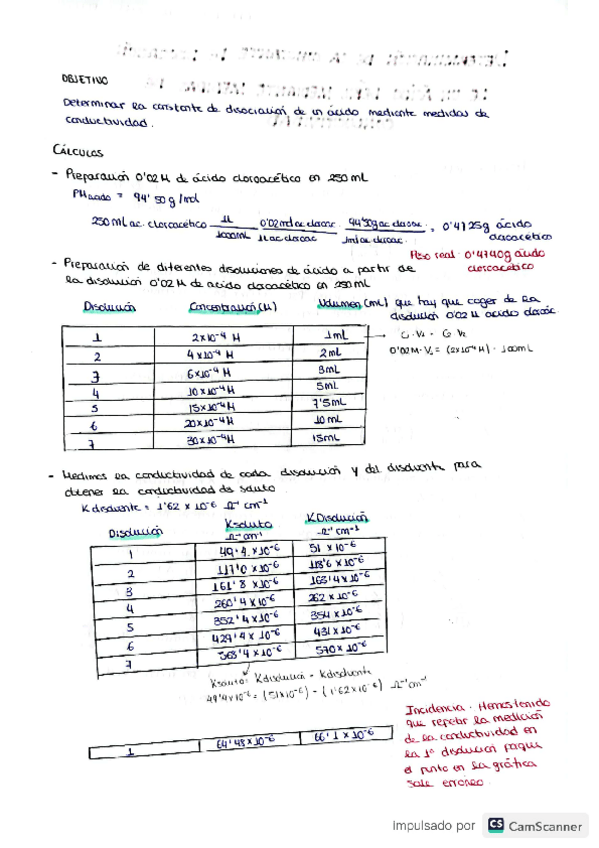 OBJETIVO
Determinar la constante de disociación de un ácido mediante medidas de
conductividad.
CÁLCULOS
- Preparación 0'02 M de ácido cloroacético en 250 mL
PM ácido = 94'50 g/mol
250 mL ac. cloroacético 1L 0'02 mol ac cloroac. 94'50g ac cloroac. = 0'4725g ácido
1000mL 1L ac cloroac 1mol ac cloroac. cloroacético
Peso real: 0'4740g ácido
cloroacético
- Preparación de diferentes disoluciones de ácido a partir de
la disolución 0'02 M de ácido cloroacético en 250 mL
Disolución Concentración (M) Volumen (mL) que hay que coger de la
disolución 0'02 M ácido cloroac
1 2x10-4 M 1mL → C1·V1 = C2·V2
2 4x10-4 M 2mL 0'02M·V1 = (2x10-4 M) · 100mL
3 6x10-4 M 3mL
4 10x10-4 M 5mL
5 15x10-4 M 7'5mL
6 20x10-4 M 10mL
7 30x10-4 M 15mL
- Medimos la conductividad de cada disolución y del disolvente para
obtener la conductividad de soluto
K disolvente = 1'62 x 10-6 Ω-1 cm-1
Disolución Ksoluto K Disolución
Ω-1 cm-1 Ω-1 cm-1
1 49'4 x10-6 51 x10-6
2 117'0 x10-6 118'6 x10-6
3 161'8 x 10-6 163'4x10-6
4 260'4 x10-6 262 x10-6
5 352'4 x10-6 354 x10-6
6 429'4 x 10-6 431 x10-6
7 568'4 x 10-6 570x 10-6
Ksoluto: Kdisolución - Kdisolvente
49'4x10-6 = (51x10-6) - (1'62x10-6) Ω-1 cm-1
Incidencia: Hemos tenido
que repetir la medición
de la conductividad en
la 1ª disolución
el punto en la gráfica
sale erróneo.
1 64'48x10-6 66'1 x 10-6
Impulsado por CS CamScanner